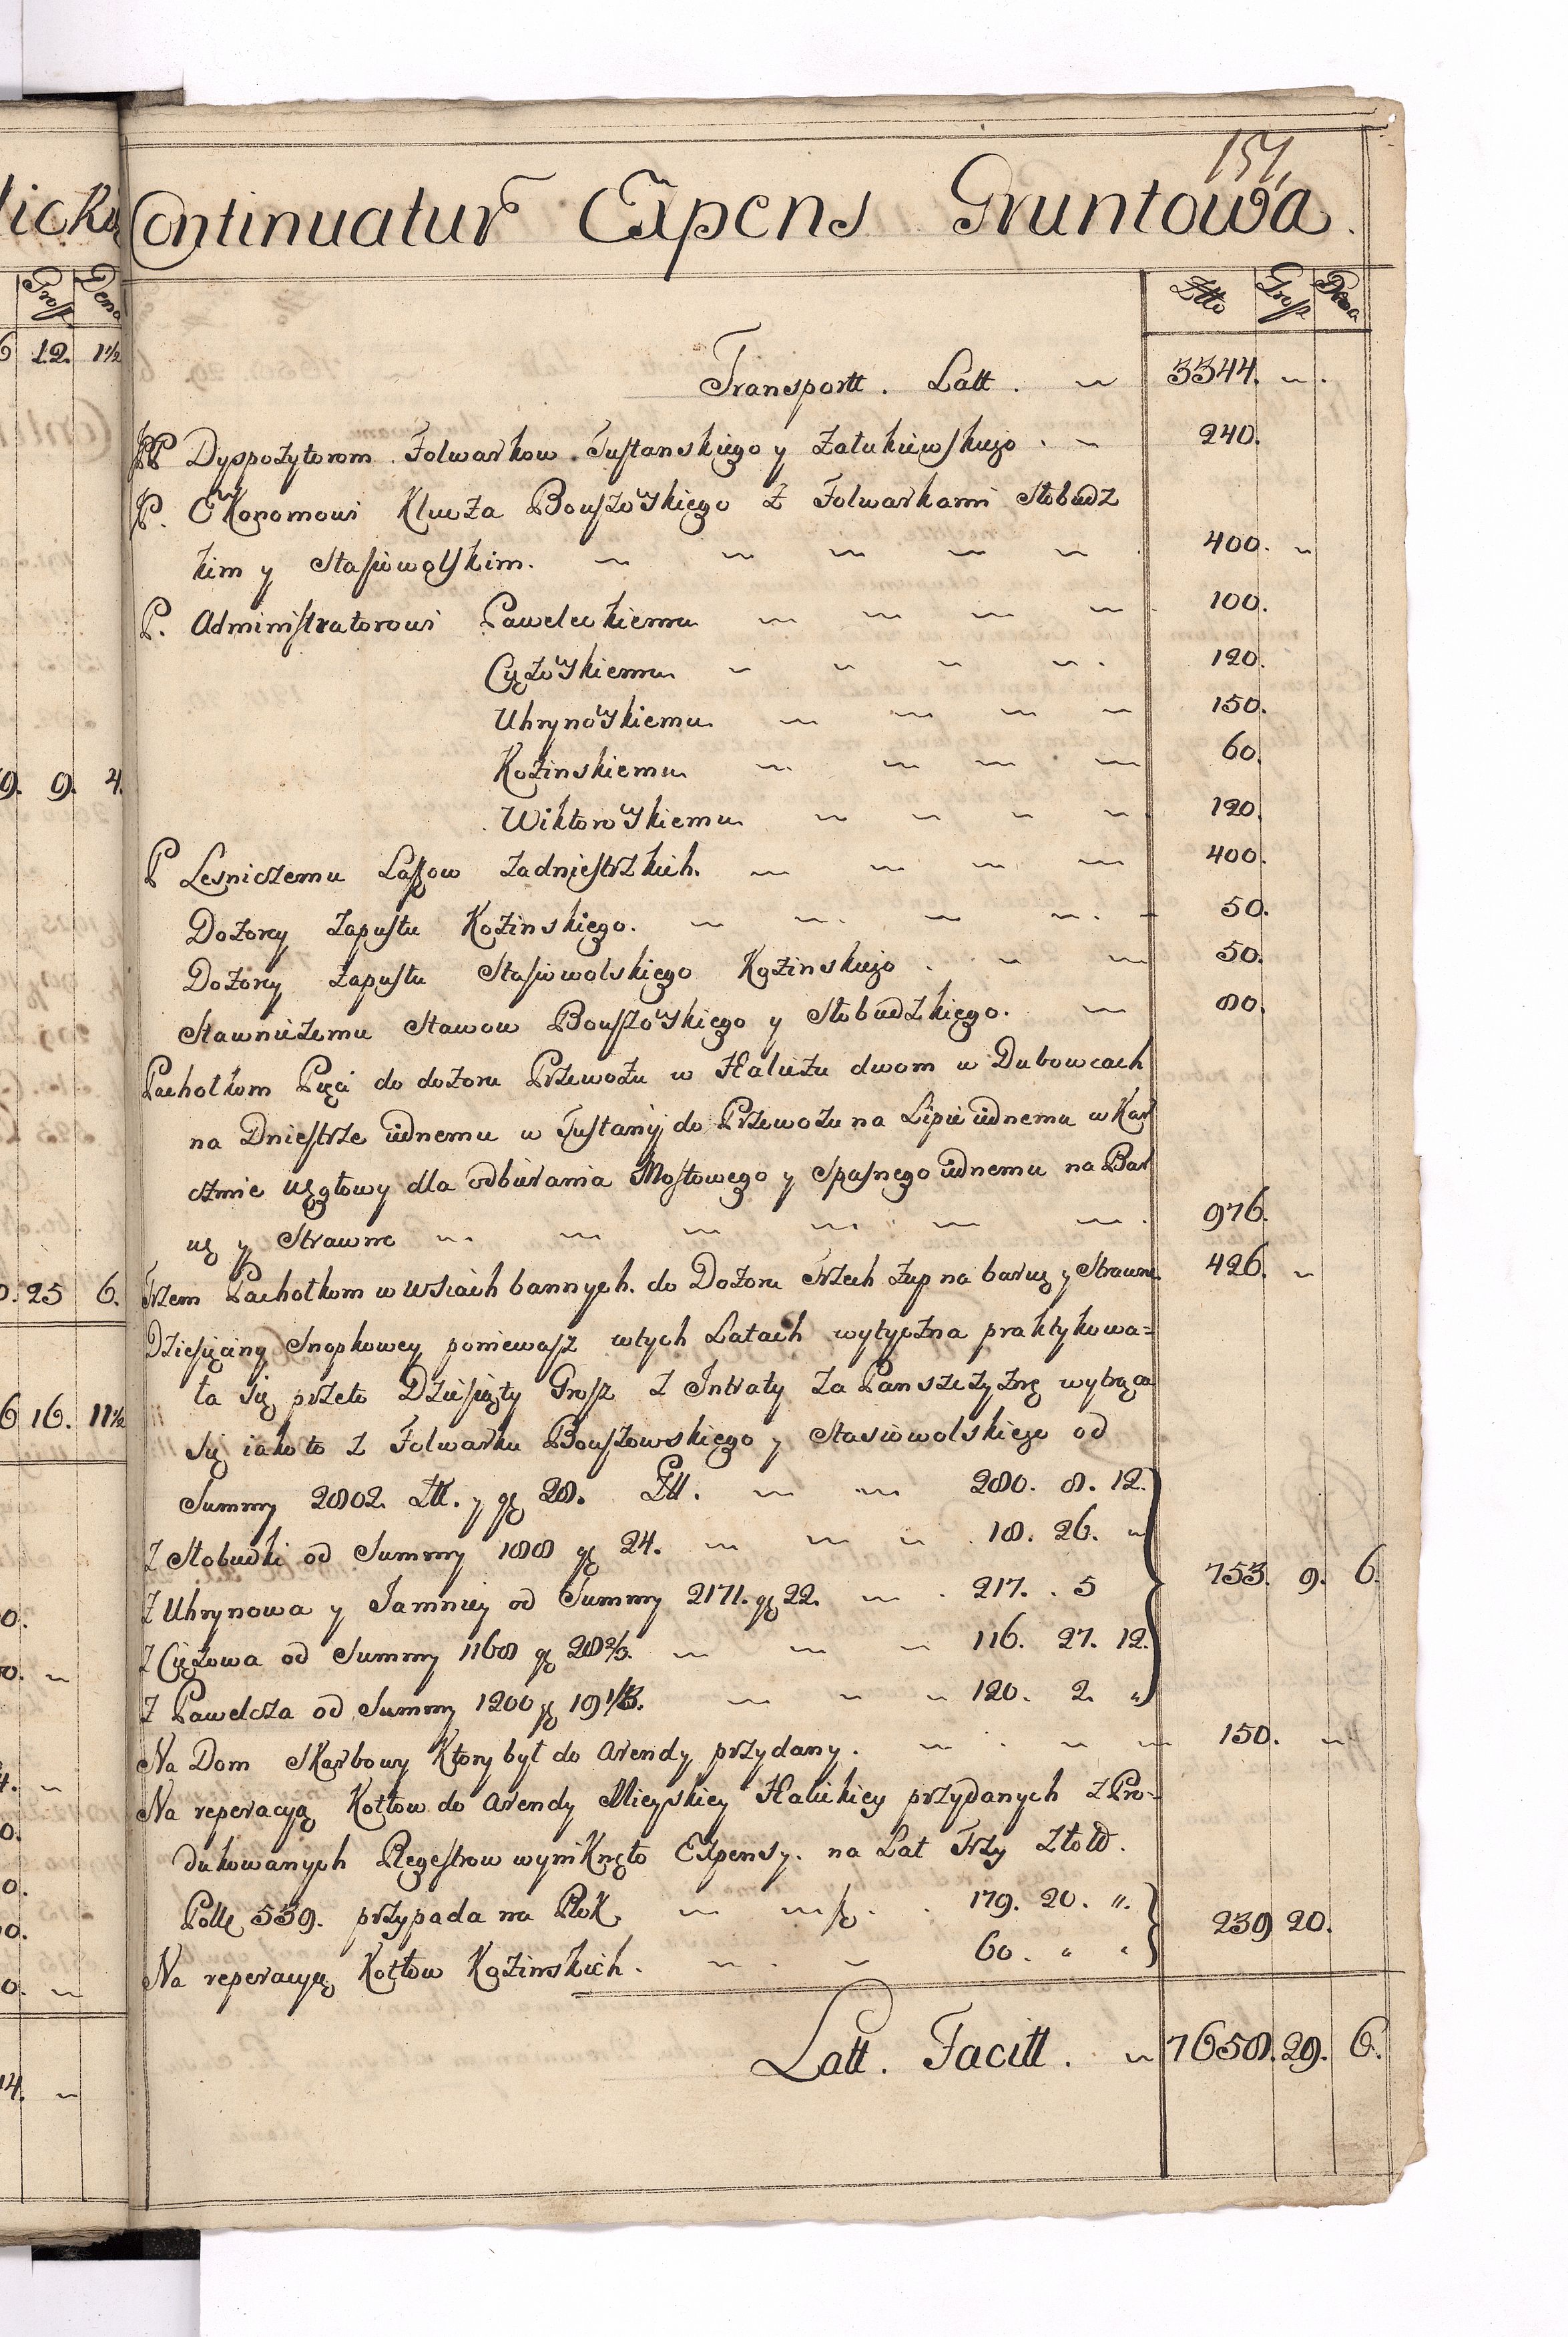 151.
Continuatur Expens Gruntowa.
Złło Gross Dena
Transportt. Latt. 3344.
PP Dyspozytorom Folwarkow Tustanskiego y Załukiewskiego. 240.
P. Ekonomowi Klucza Bouszowskiego z Folwarkami Słobudz
kim y Stasiowolskim. 400.
P. Administratorowi Paweleckiemu 100.
Cięzowskiemu 120.
Uhrynowskiemu 150.
Kozinskiemu 60.
Wiktorowskiemu 120.
P Lesniczemu Lassow Zadniestrzkich. 400.
Dozorcy Zapustu Kozinskiego. 50.
Dozorcy Zapustu Stasiowolskiego Kozinskiego. 50.
Stawniczemu Stawow Bouszowskiego y Słobudzkiego. 80.
Pachołkom Pięci do dozoru Przewozu w Haliczu dwom w Dubowcach
na Dniestrze iednemu w Tustanij do Przewozu na Lipie iednemu w Kar
czmie uzgłowy dla odbierania Mostowego y Spasnego iednemu na Bar
wę y Strawne 976.
Trzem Pachołkom w Wsiach bannych. do Dozoru Trzech Zup na barwę y Strawne 426.
Dziesięciny Snopkowey poniewasz wtych Latach wytyczna praktykowa=
ła się przeto Dziesiąty Grosz z Intraty za Panszczyznę wytrąca
się iako to z Folwarku Bouszowskiego y Stasiowolskiego od
Summy 2802. Zł. y gr 28. Zll. 280. 8. 12.
Z Słobudki od Summy 188 gr 24. 18. 26. 753. 9. 6.
Z Uhrynowa y Jamnicy od Summy 2171. gr 22. 217. 5
Z Ciężowa od Summy 1168 gr 28 2/3. 116. 27. 12.
Z Pawelcza od Summy 1200 gr 19 1/3. 120. 2.
Na Dom Skarbowy Ktory był do Arendy przydany. 150.
Na reperacyą Kotłow do Arendy Mieyskiey Halickiey przydanych z Pro=
dukowanych Regestrow wynikneło Expensy. na Lat Trzy Złotd.
Poll. 539. przypada na Rok 179. 20. 239 20.
Na reperacyą Kotłow Kozinskich. 60.
Latt. Facitt. 7658. 29. 6.
12. 1½
9. 4.
25 6.
16. 11½